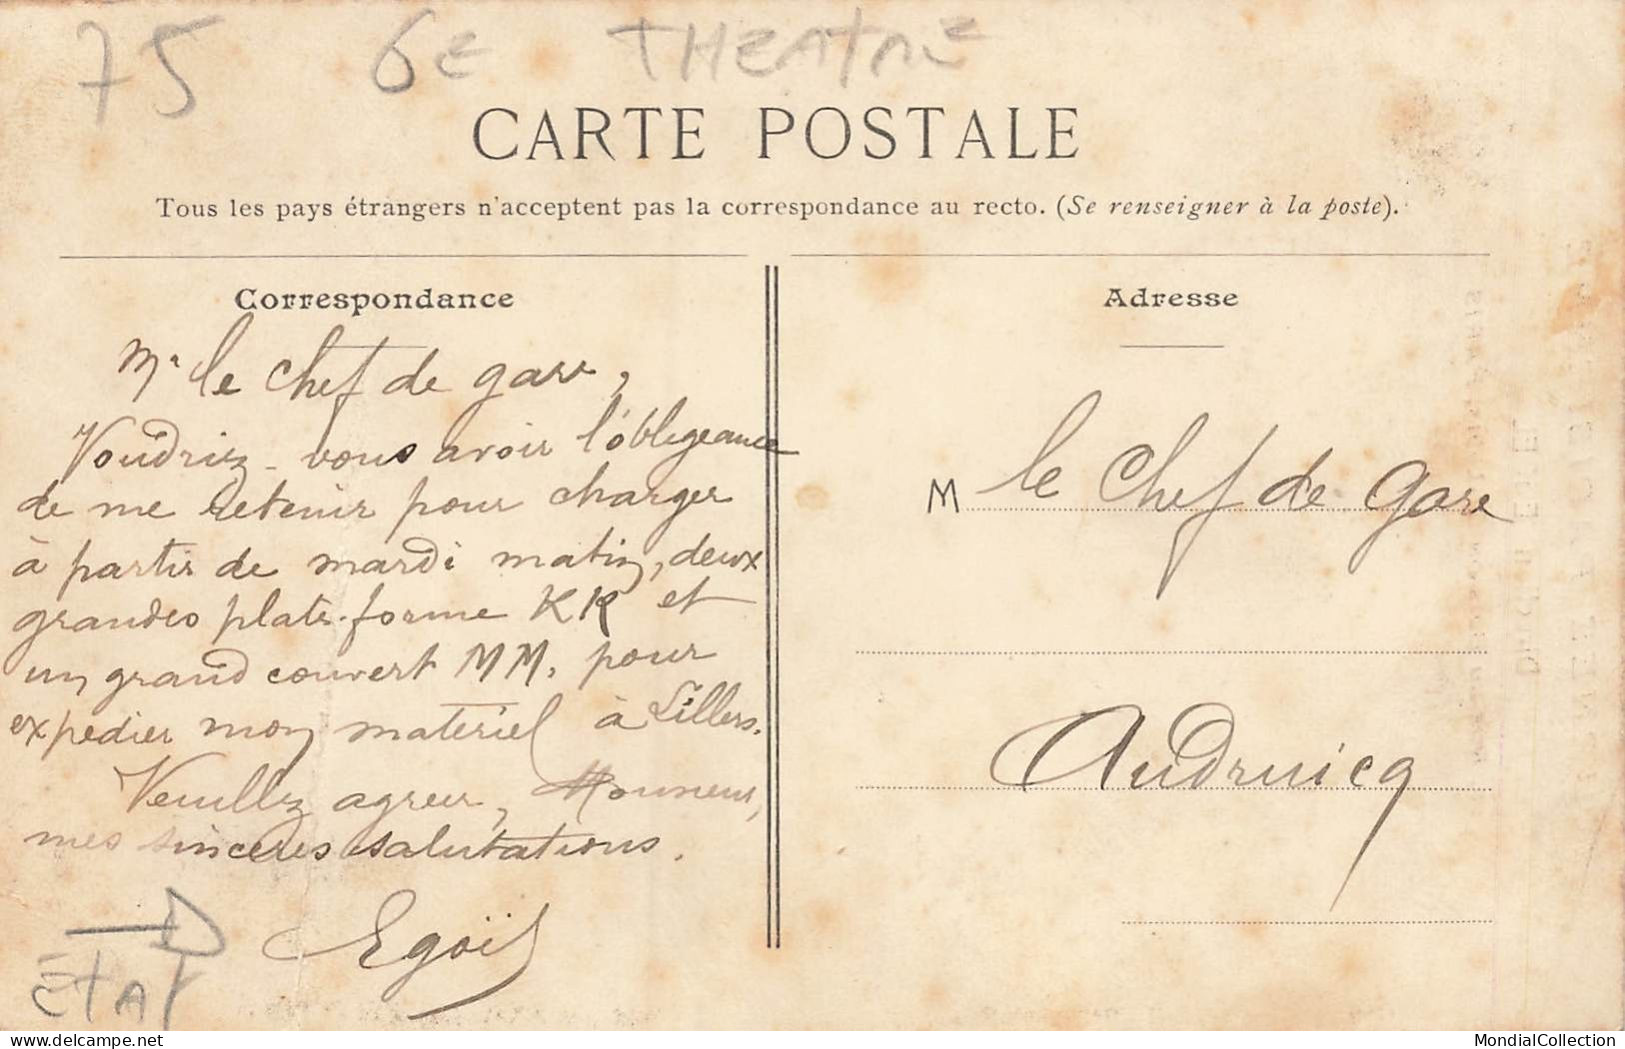 75 6E THEATRE
CARTE POSTALE
Tous les pays étrangers n'acceptent pas la correspondance au recto. (Se renseigner à la poste).
Correspondance
Mr le chef de gare,
Voudriez-vous avoir l'obligeance
de me retenir pour charger
à partir de mardi matin, deux
grandes plate-forme KK et
un grand couvert MM, pour
expédier mon matériel à Lillers.
Veuillez agréer, Monsieur,
mes sincères salutations.
ETAT
Adresse
M le Chef de Gare
Audruicq
MondialCollection